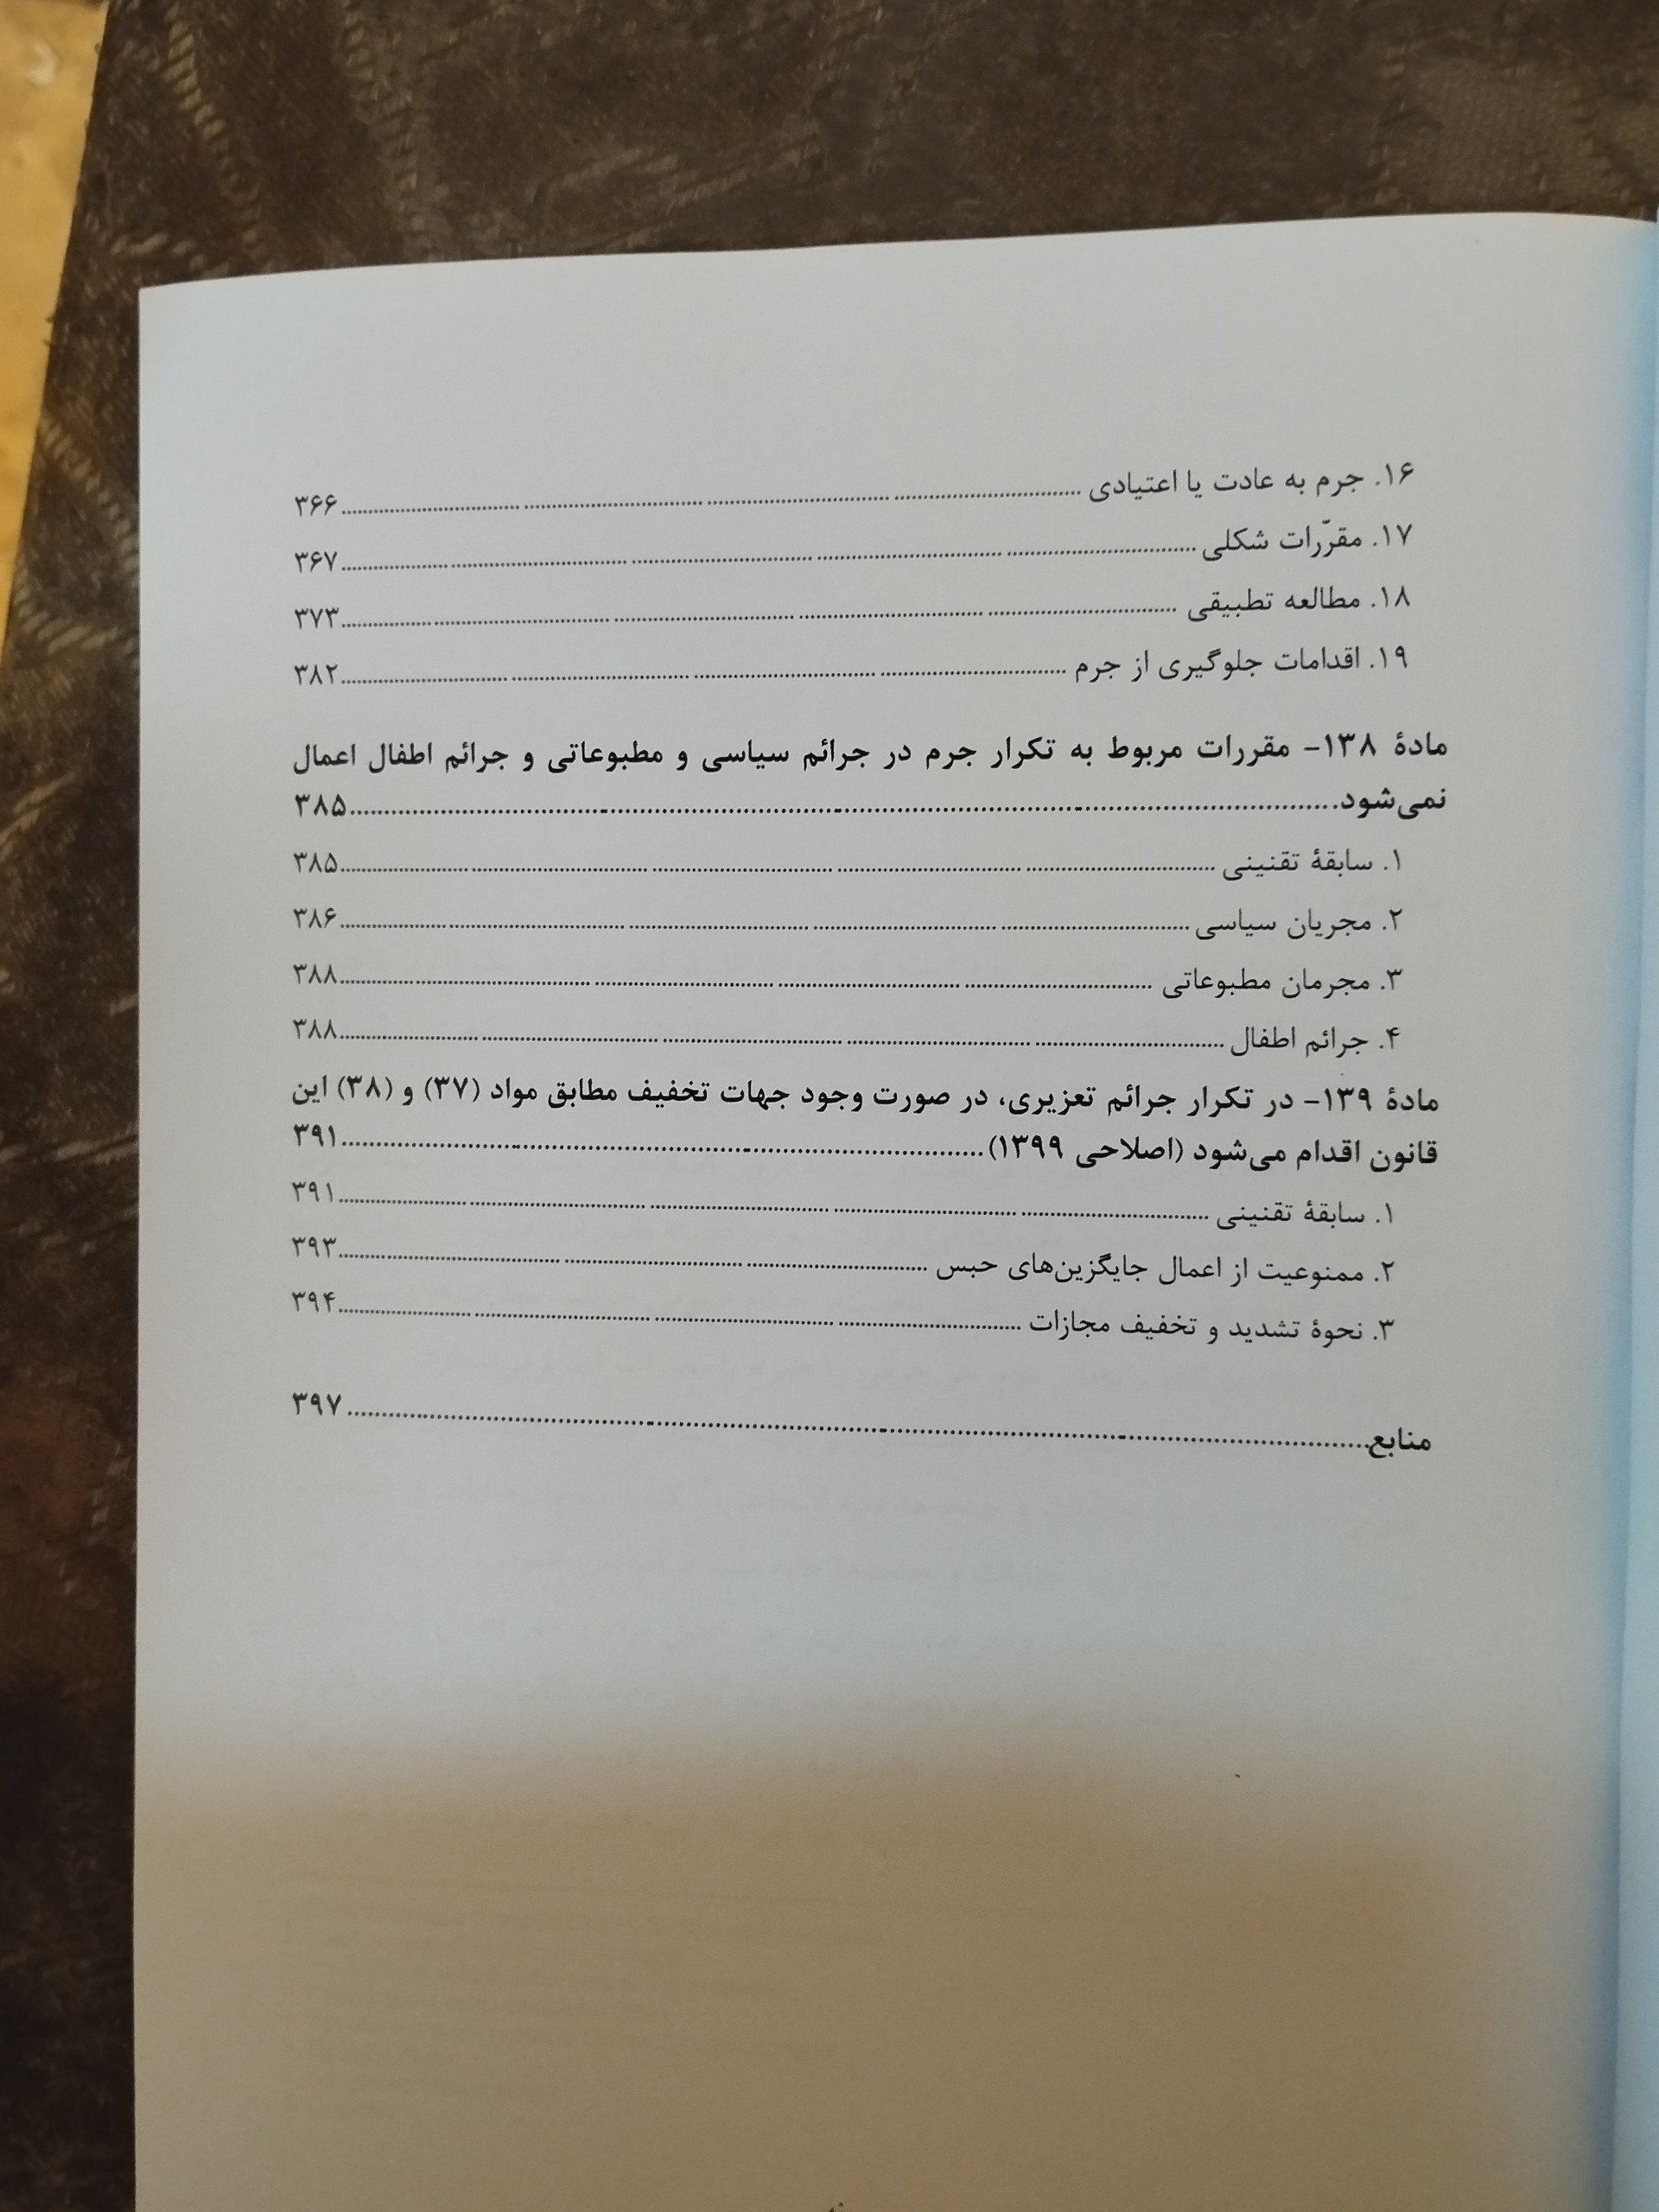 ۱۶. جرم به عادت یا اعتیادی ........ ۳۶۶
۱۷. مقرّرات شکلی ........ ۳۶۷
۱۸. مطالعه تطبیقی ........ ۳۷۳
۱۹. اقدامات جلوگیری از جرم ........ ۳۸۲
مادۀ ۱۳۸- مقررات مربوط به تکرار جرم در جرائم سیاسی و مطبوعاتی و جرائم اطفال اعمال
نمی‌شود ........ ۳۸۵
۱. سابقۀ تقنینی ........ ۳۸۵
۲. مجریان سیاسی ........ ۳۸۶
۳. مجرمان مطبوعاتی ........ ۳۸۸
۴. جرائم اطفال ........ ۳۸۸
مادۀ ۱۳۹- در تکرار جرائم تعزیری، در صورت وجود جهات تخفیف مطابق مواد (۳۷) و (۳۸) این
قانون اقدام می‌شود (اصلاحی ۱۳۹۹) ........ ۳۹۱
۱. سابقۀ تقنینی ........ ۳۹۱
۲. ممنوعیت از اعمال جایگزین‌های حبس ........ ۳۹۳
۳. نحوۀ تشدید و تخفیف مجازات ........ ۳۹۴
منابع ........ ۳۹۷